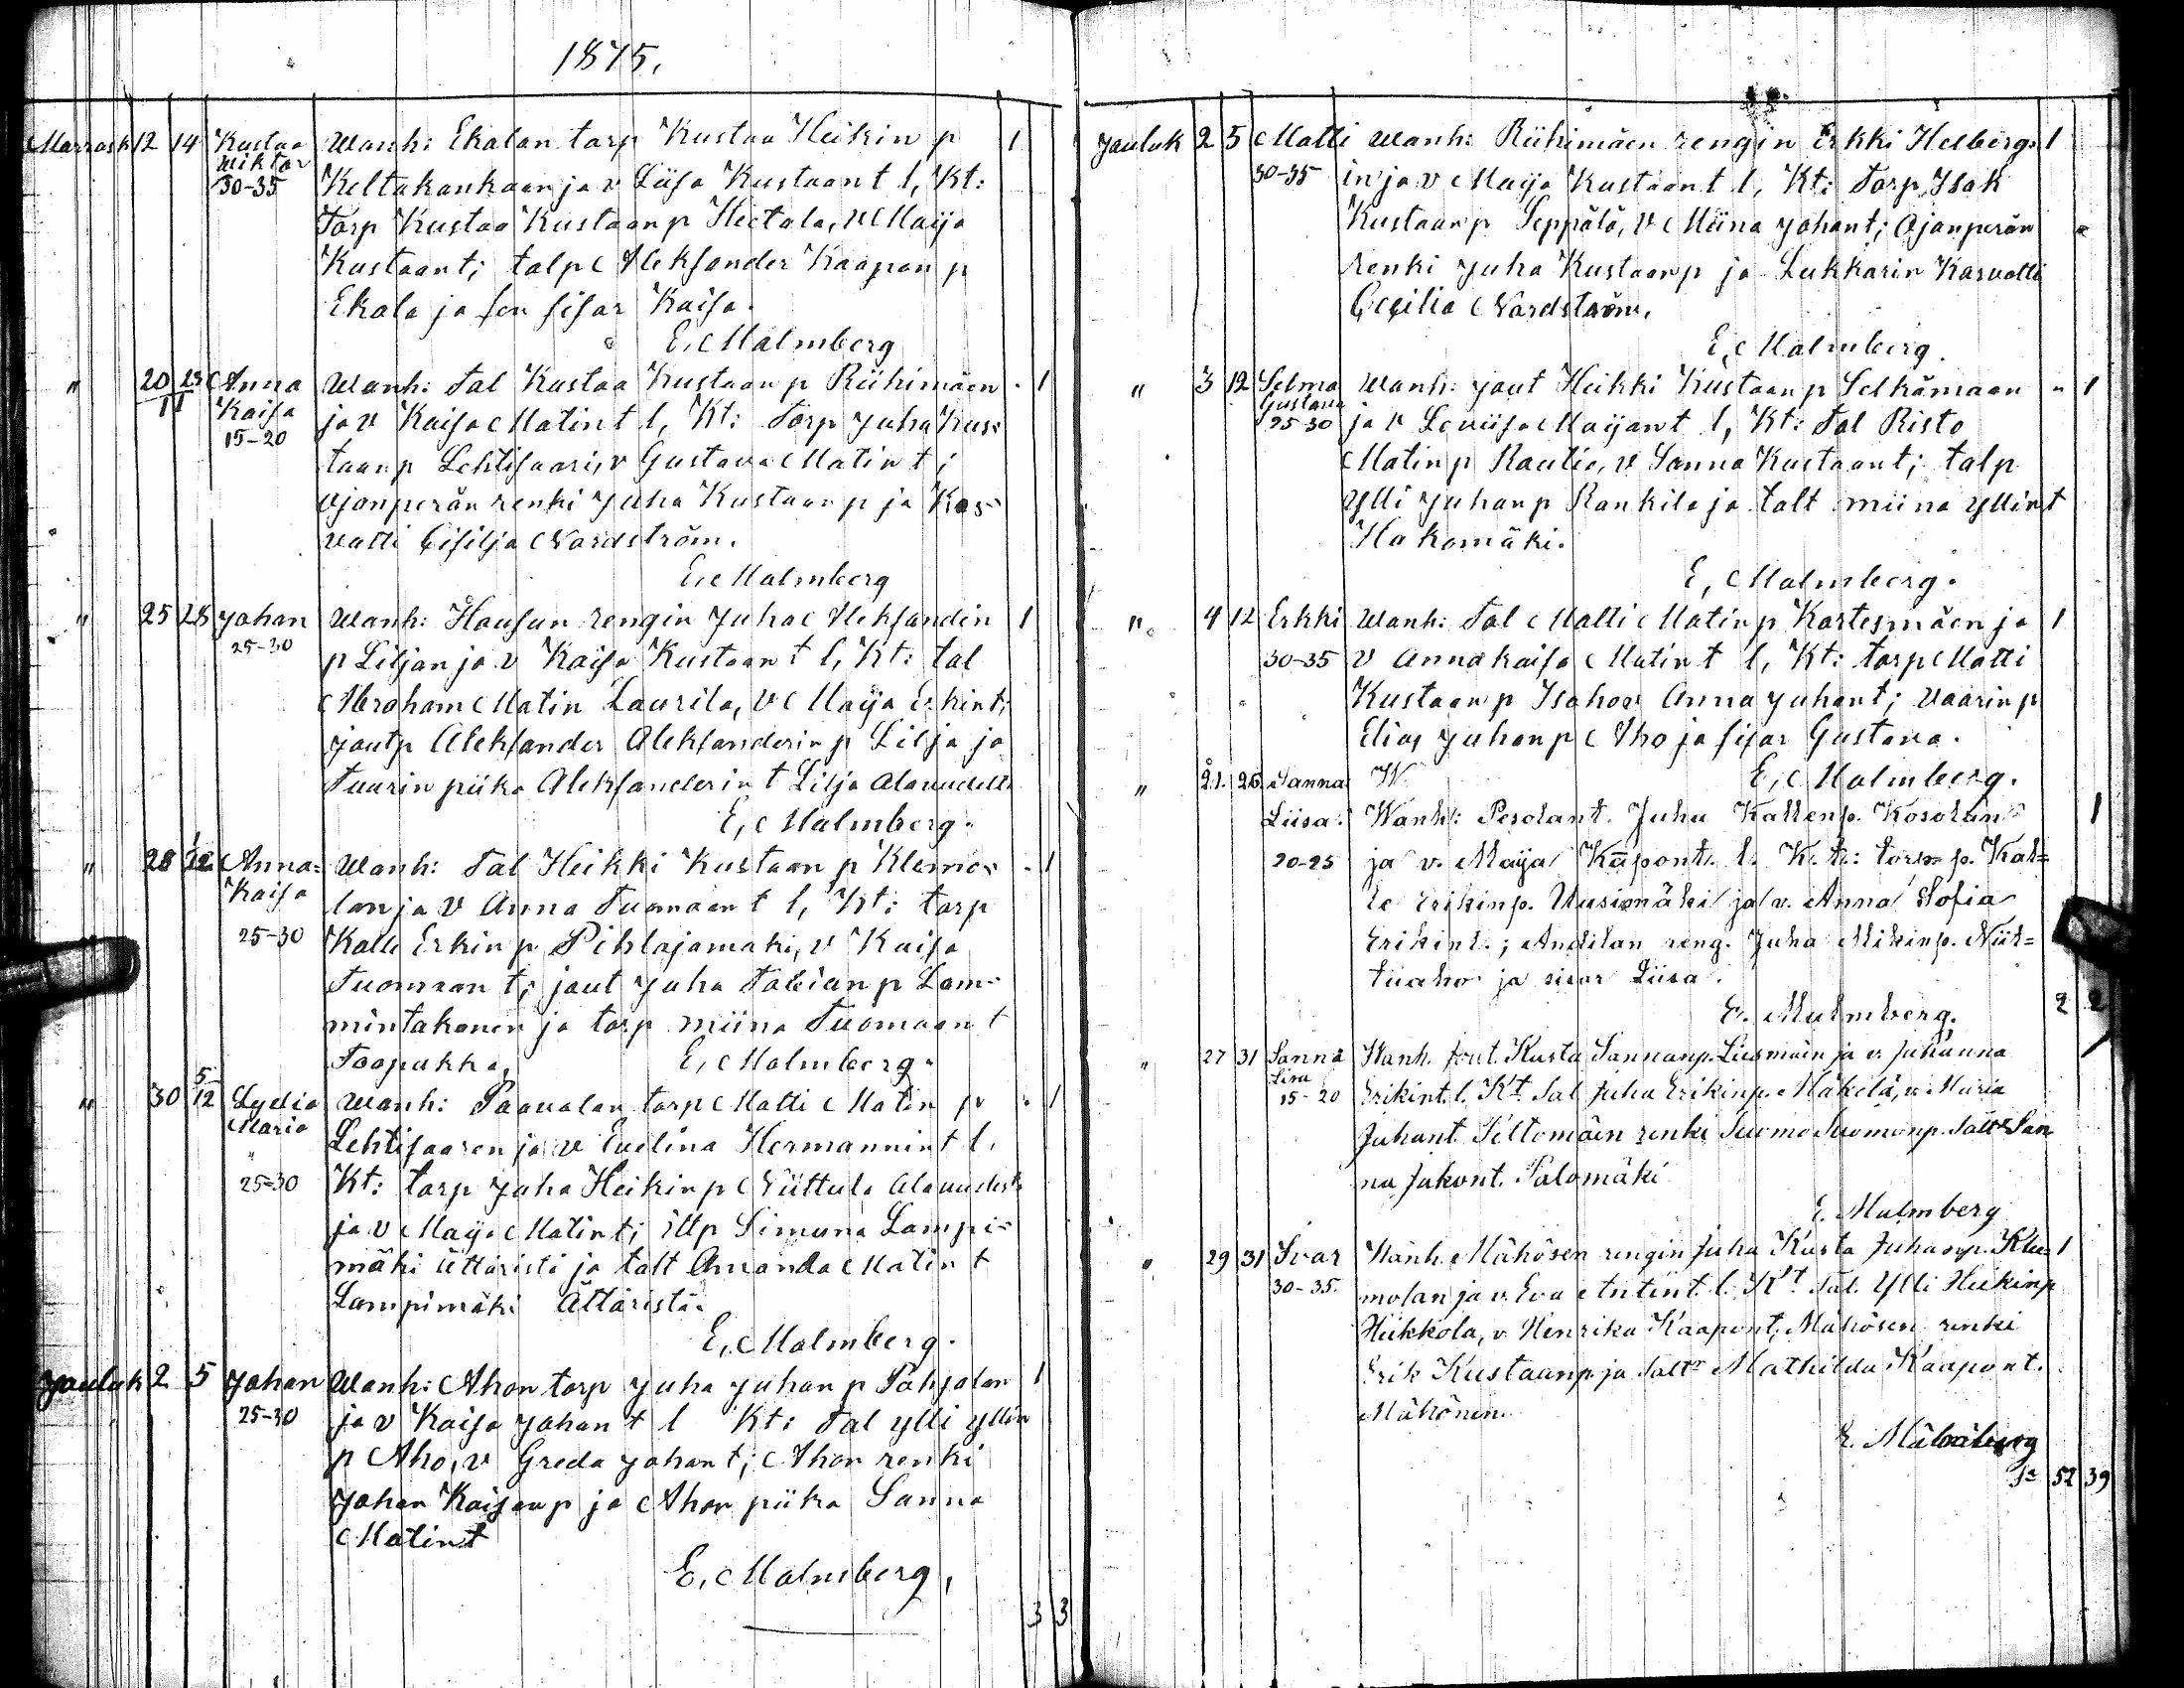 1875.
Marrask 12 14 Kustaa Wanh: Ekalan torp Kustaa Heikin p 1
Wiktor
30-35 Keltakankaan ja v Liisa Kustaan t l, Kt:
Torp Kustaa Kustaan p Hietala, v Maija
Kustaant; talp Aleksander Kaapon p
Ekala ja sen sisar Kaisa.
E, Malmberg
" 20 25 Anna Wanh: Tal Kustaa Kustaan p Riihimäen - 1
11 Kaisa ja v Kaisa Matin t l, Kt: Torp Juha Kus-
15-20 taan p Lehtisaari, v Gustava Matin t;
Ojanperän renki Juha Kustaan p ja Kas-
vatti Cisilja Nordström.
E, Malmberg
" 25 28 Johan Wanh: Hausun rengin Juha Aleksandin 1
25-30 p Liljan ja v Kaisa Kustaan t l, Kt: tal
Abraham Matin Laurila, v Maija Erkint;
joutp Aleksander Aleksanderin p Lilja ja
Tuurin piika Aleksanderin t Lilja Alavudelta
E, Malmberg.
" 28 1/12 Anna= Wanh: Tal Heikki Kustaan p Klemo- - 1
Kaisa lan ja v Anna Tuomaan t l, Kt: torp
25-30 Kalle Erkin p Pihlajamäki, v Kaisa
Tuomaan t; jout Juha Tobian p Lam-
mintakanen ja torp miina Tuomaan t
Toopakka, E, Malmberg.
" 30 5/12 Lydia Wanh: Paavolan torp Matti Matin p - 1
Maria Lehtisaaren ja v Evelina Hermannin t l,
25-30 Kt: torp Juha Heikin p Niittula Alavudesta
ja v Maija Matint; itlp Simuna Lampi-
mäki Ättäristä ja talt Amanda Matin t
Lampimäki Ättäristä.
E, Malmberg.
Jouluk 2 5 Johan Wanh: Ahon torp Juha Juhan p Pohjolan 1
25-30 ja v Kaisa Johan t l Kt: Tal Ylli Yllin
p Aho, v Greda Johan t; Ahon renki
Johan Kaisan p ja Ahon piika Sanna
Matint
E, Malmberg,
3 3
Jouluk 2 5 Matti Wanh: Riihimäen rengin Erkki Helberg- 1
30-35 in ja v Maija Kustaan t l, Kt: Torp, Isak
Kustaan p Seppälä, v Miina Johant; Ojanperän
renki Juha Kustaan p ja Lukkarin Kasvatti
Cecilia Nordström.
E, Malmberg.
" 3 12 Selma Wanh: jout Heikki Kustaan p Selkämaan - 1
Gustava
25-30 ja v Loviisa Maijan t l, Kt: Tal Risto
Matin p Rautio, v Sanna Kustaant; talp
Ylli Juhan p Rankila ja talt miina Yllint
Hakomäki.
E, Malmberg.
" 4 12 Erkki Wanh: Tal Matti Matin p Kortesmäen ja 1
30-35 v Annakaisa Matin t l, Kt: torp Matti
Kustaan p Isoho v Anna Juhant; vaarin p
Elias Juhan p Aho ja sisar Gustava.
" 21. 26 Sanna W E, Malmberg.
Liisa. Wanh: Pesolant. Juha Kallenp. Kosolan 1
20-25 ja v. Maija Kapont. l. K. t.: torp. p. Kal=
le Erikinp. Uusimäki ja v. Anna Sofia
Erikint.; Anttilan reng. Juha Mikinp. Niit=
tuaho ja sisar Liisa.
E. Malmberg. 2 2
" 27 31 Sanna Wanh. jout. Kusta Sannanp. Liesmäin ja v. Johanna
Lisa
15-20 Erikint. l. Kt. Tal Juha Erikinp. Mäkelä, v. Maria
Juhant. Peltomäen renki Tuomo Tuomonp. Talt San
na Jakont. Palomäki
E. Malmberg
" 29 31 Ivar Wanh. Mähösen rengin Juha Kusta Juhanp. Kle= 1
30-35. molan ja v. Eva Antint. l. Kt. Tal. Ylli Heikinp
Heikkola, v. Henrika Kaapont; Mähösen renki
Erik Kustaanp. ja Taltr Mathilda Kaapont.
Mähönen.
E. Malmberg
Sa 52 39